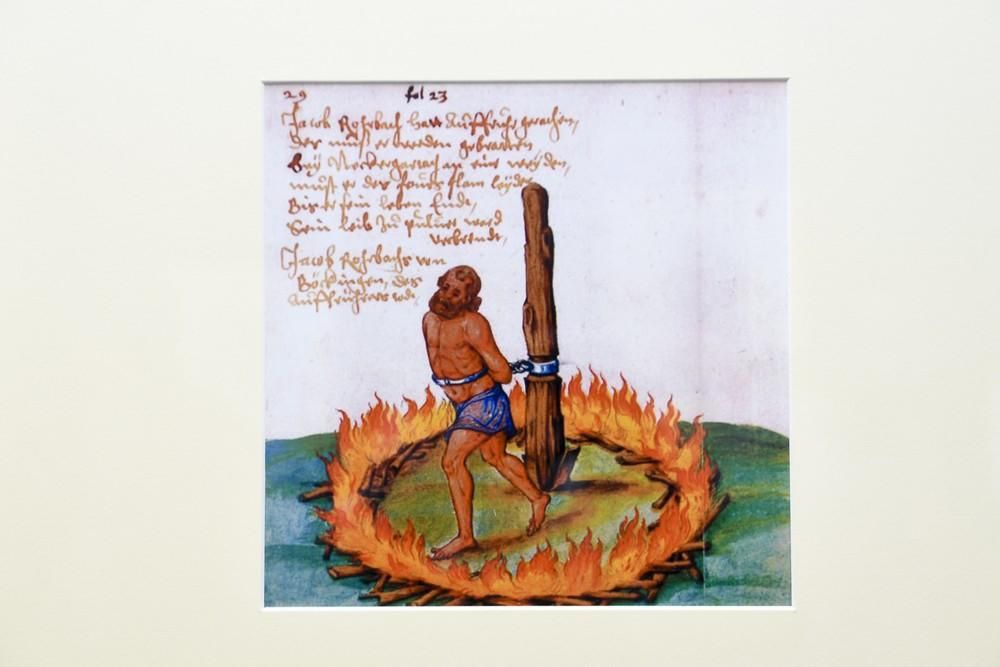 29 fol 23
Jacob Rohrbach hatt Auffruhr gerachen,
der must er werden gebratten
bey Neckergartach an eine weyden,
must er des feurs flam leyden
Bis er sein leben Endt,
Sein leib zu puluer ward
verbrendt,
Jacob Rohrbachs von
Böckingen, des
Auffrührers